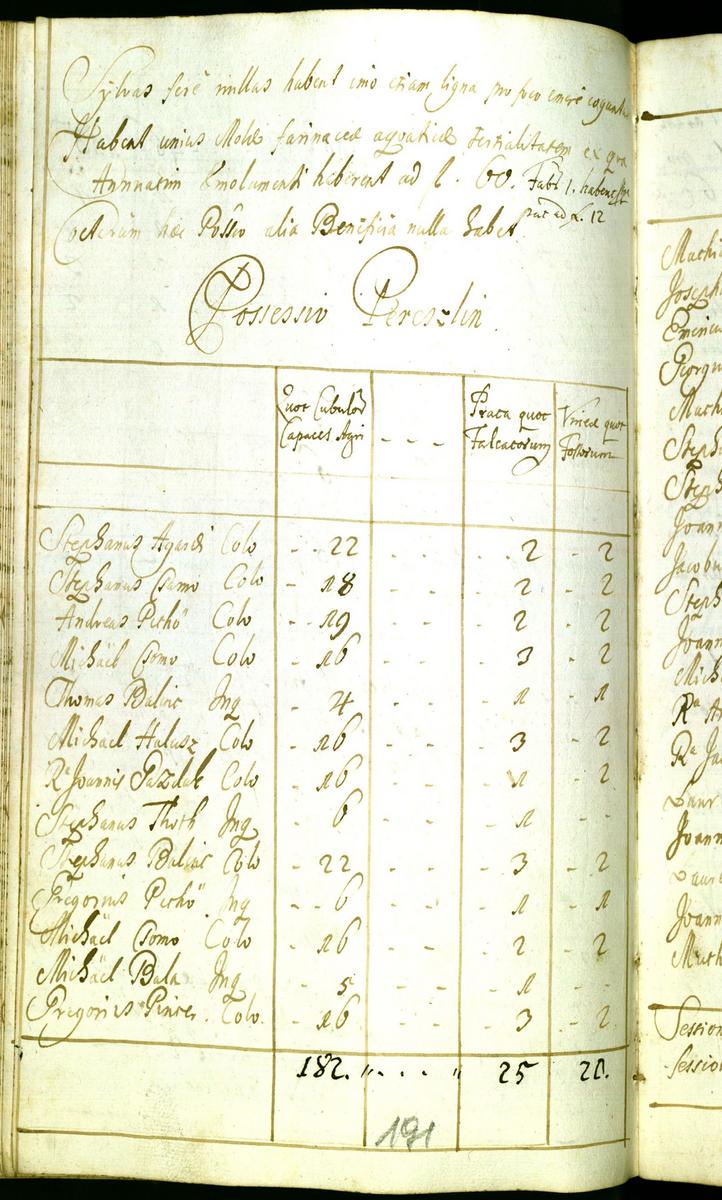 Sylvas ferè nullas habent imo etiam ligna pro foco emere coguntur
Habent unius Molae farinaceae aquaticae Tertialitatem ex qua
Annuatim Emolumenti haberent ad f. 60. Fabr 1. habens
ad f. 12
Coeterum haec Possio alia Beneficia nulla habet
Possessio Pereszlin
Quot Cubulor̄ Capaces Agri - - - Prata quot Falcatorum Vineae quot Fossorum
Stephanus Agardi Colo - 22 - - . 2 - 2
Stephanus Csomo Colo - 18 - - 2 - 2
Andreas Pethö Colo - 19 - - 2 - 2
Michäel Csomo Colo - 16 - - 3 - 2
Thomas Balint Inq - 4 - - 1 - 1
Michael Halusz Colo - 16 - - 3 - 2
Ra Joannis Pazdak Colo - 16 - - 1 - 2
Stephanus Thoth Inq - 6 - - 1 - -
Stephanus Balint Colo - 22 - - 3 - 2
Gregorius Pethö Inq - - 6 - - 1 - 1
Michäel Csomo Colo - 16 - - 2 - 2
Michäel Bala Inq - 5 - - 1 - -
Gregorius Pinter. Colo. - 16 - - 3 - 2
182. " - - - " 25 20.
191
Mathi
Joseph
Emericus
Georgiu
Math
Steph
Steph
Joann
Jacobu
Steph
Joann
Mich
Ra A
Ra Ja
Laur
Joann
Laure
Joann
Math
Session
Session